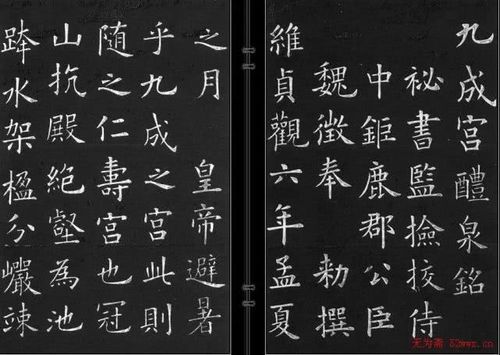 九成宮醴泉銘
祕書監撿挍侍
中鉅鹿郡公臣
魏徵奉 勅撰
維貞觀六年孟夏
之月 皇帝避暑
乎九成之宮此則
随之仁壽宮也冠
山抗殿絕壑為池
跨水架楹分巖竦
无为斋 52wwz.cn